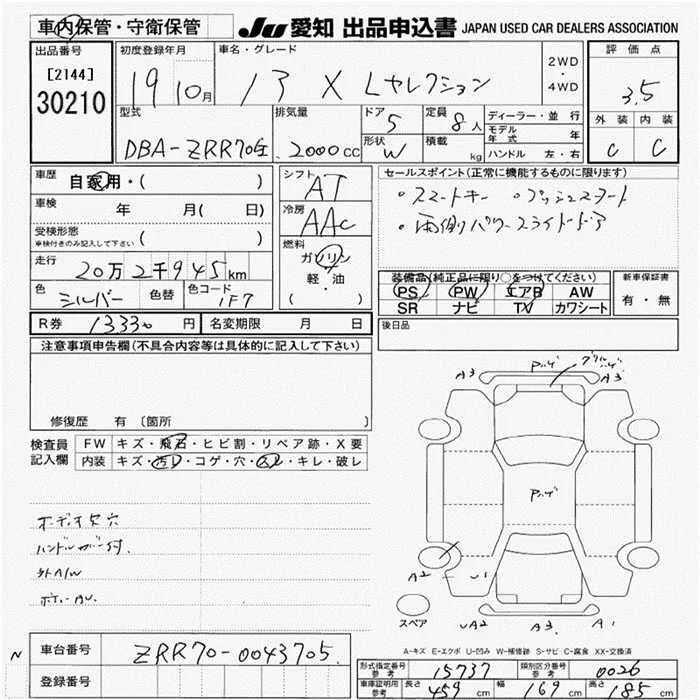 車内保管・守衛保管
JU 愛知 出品申込書 JAPAN USED CAR DEALERS ASSOCIATION
出品番号
[2144]
30210
初度登録年月
19 10月
車名・グレード
13 X Lセレクション
2WD
・
4WD
評価点
3.5
外装 内装
C C
型式
DBA-ZRR70
排気量
2000cc
ドア
5
形状
W
定員
8人
積載
kg
ディーラー・並行
モデル年式 年
ハンドル 左・右
車歴
自家用・( )
車検 年 月( 日)
受検形態
車検付きのみ記入して下さい ( )
走行 20万2千945km
色 シルバー 色替 色コード 1F7
シフト
AT
冷房
AAC
燃料
ガソリン
・
軽油
( )
セールスポイント(正常に機能するものに限ります)
・スマートキー ・プッシュスタート
・両側パワースライドドア
装備品(純正品に限り○をつけてください)
PS PW エアB AW
SR ナビ TV カワシート
新車保証書
有・無
R券 13330円 名変期限 月 日
後日品
注意事項申告欄(不具合内容等は具体的に記入して下さい)
修復歴 有 〔箇所 〕
検査員
記入欄
FW キズ・飛石・ヒビ割・リペア跡・X要
内装 キズ・汚レ・コゲ・穴・スレ・キレ・破レ
オーディオ欠穴
外A/W
A3 A3
A2 U1
スペア
UA2 A3 A1
A-キズ E-エクボ U-凹み W-補修跡 S-サビ C-腐食 XX-交換済
N
車台番号 ZRR70-0043705
登録番号
型式指定番号
参考
15737
類別区分番号
参考
0026
車庫証明用
参考
長さ 459cm 幅 169cm 高さ 185cm